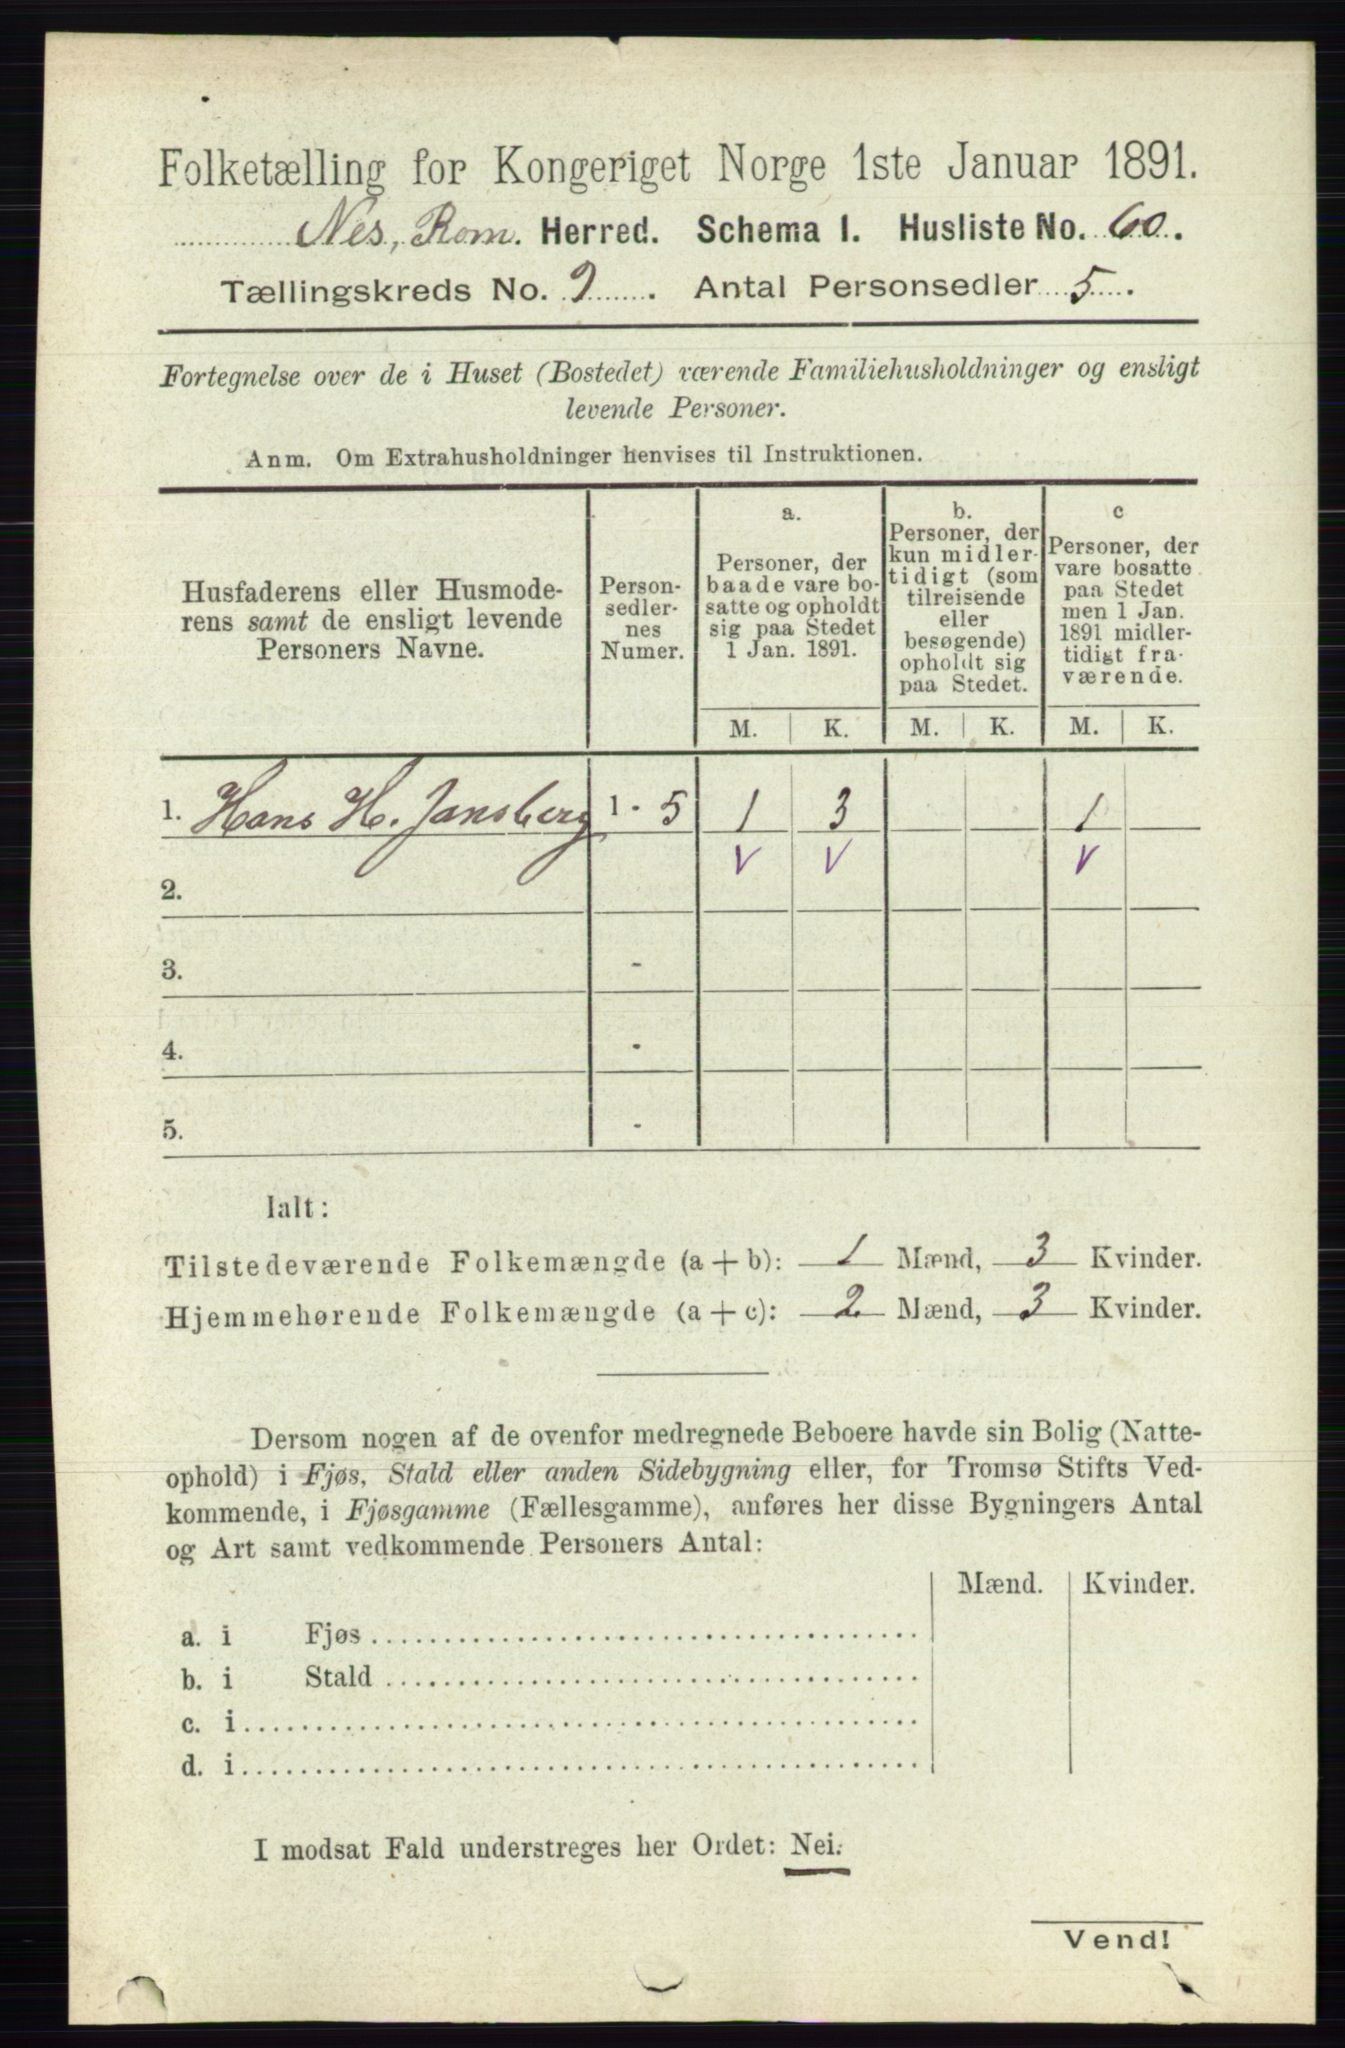 Folketælling for Kongeriget Norge 1ste Januar 1891.
Nes, Rom. Herred. Schema I. Husliste No. 60.
Tællingskreds No. 9. Antal Personsedler 5.
Fortegnelse over de i Huset (Bostedet) værende Familiehusholdninger og ensligt
levende Personer.
Anm. Om Extrahusholdninger henvises til Instruktionen.
Husfaderens eller Husmode-
rens samt de ensligt levende
Personers Navne.
Person-
sedler-
nes
Numer.
a.
Personer, der
baade vare bo-
satte og opholdt
sig paa Stedet
1 Jan. 1891.
M. K.
b.
Personer, der
kun midler-
tidigt (som
tilreisende
eller
besøgende)
opholdt sig
paa Stedet.
M. K.
c
Personer, der
vare bosatte
paa Stedet
men 1 Jan.
1891 midler-
tidigt fra-
værende.
M. K.
1. Hans H. Jansberg 1 - 5 1 3 1
V V V
2.
3. -
4. -
5. -
Ialt:
Tilstedeværende Folkemængde (a + b): 1 Mænd, 3 Kvinder.
Hjemmehørende Folkemængde (a + c): 2 Mænd, 3 Kvinder.
Dersom nogen af de ovenfor medregnede Beboere havde sin Bolig (Natte-
ophold) i Fjøs, Stald eller anden Sidebygning eller, for Tromsø Stifts Ved-
kommende, i Fjøsgamme (Fællesgamme), anføres her disse Bygningers Antal
og Art samt vedkommende Personers Antal:
Mænd. Kvinder.
a. i Fjøs
b. i Stald
c. i
d. i
I modsat Fald understreges her Ordet: Nei.
Vend!